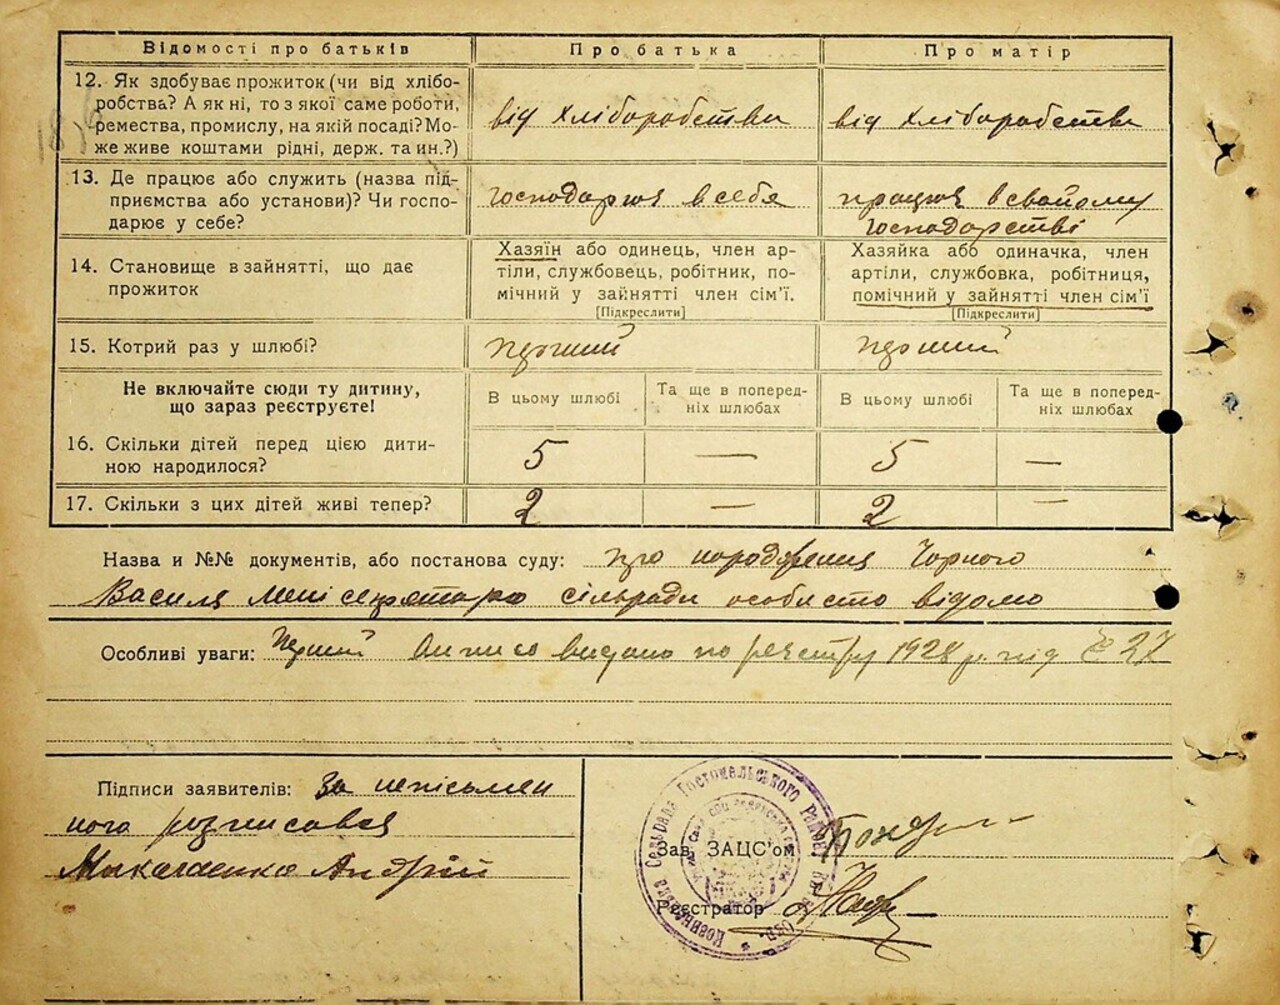 Відомості про батьків Про батька Про матір
12. Як здобуває прожиток (чи від хлібо-
робства? А як ні, то з якої саме роботи,
ремества, промислу, на якій посаді? Мо-
же живе коштами рідні, держ. та ин.?)
від хліборобства
від хліборобства
13. Де працює або служить (назва під-
приємства або установи)? Чи госпо-
дарює у себе?
господарює в себя
працює в свойому
господарстві
14. Становище в зайнятті, що дає
прожиток
Хазяїн або одинець, член ар-
тіли, службовець, робітник, по-
мічний у зайнятті член сім'ї.
[Підкреслити]
Хазяйка або одиначка, член
артіли, службовка, робітниця,
помічний у зайнятті член сім'ї
[Підкреслити]
15. Котрий раз у шлюбі?
перший
перший
Не включайте сюди ту дитину,
що зараз реєструєте!
В цьому шлюбі
Та ще в поперед-
ніх шлюбах
В цьому шлюбі
Та ще в поперед-
ніх шлюбах
16. Скільки дітей перед цією дити-
ною народилося?
5 — 5 —
17. Скільки з цих дітей живі тепер?
2 — 2 —
Назва и №№ документів, або постанова суду: про народження Чорного
Василя мені секретарю сільради особисто відомо
Особливі уваги: Перший видано по реєстру 1928 р. під № 27
Підписи заявителів: За неписьмен
ного розписався
Андрій
Зав. ЗАЦС'ом
Реєстратор
Сельрада Гостомельського Району